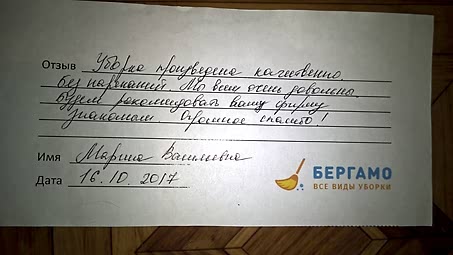 Отзыв Уборка произведена качественно
без нареканий. Мы всем очень довольны.
Будем рекомендовать вашу фирму
знакомым. Огромное спасибо!
Имя Марина Васильевна
Дата 16.10.2017
БЕРГАМО
ВСЕ ВИДЫ УБОРКИ